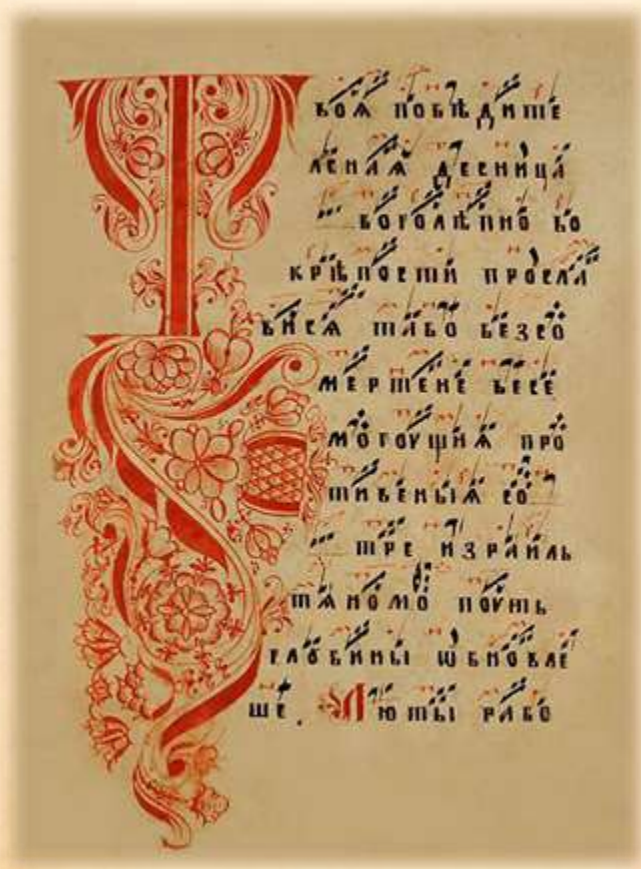 Твоя побѣдите
лєсная десница
боголѣпно во
крѣпости просла
вися таво безсо
мертене весе
могоущия про
тивеныя со
тре израиль
тяномо поуть
глобины ѡбновле
ше. Люты рабо